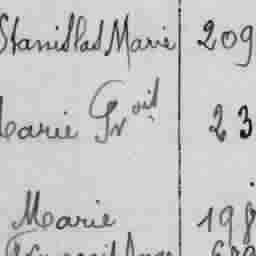 Stanislas Marie 209
Marie Fr^oit 23
Marie 198